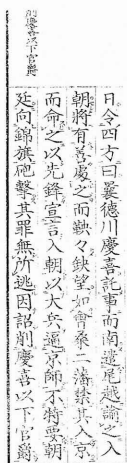 削慶喜以下官爵
日令四方曰曩德川慶喜託事而南遣尾越諭之入
朝將有善處之而鞅々缺望如會桑二藩禁其入京
而命之以先鋒宣言入朝以大兵逼京師不特要朝
廷向錦旗砲擊其罪無所逃因詔削慶喜以下官爵